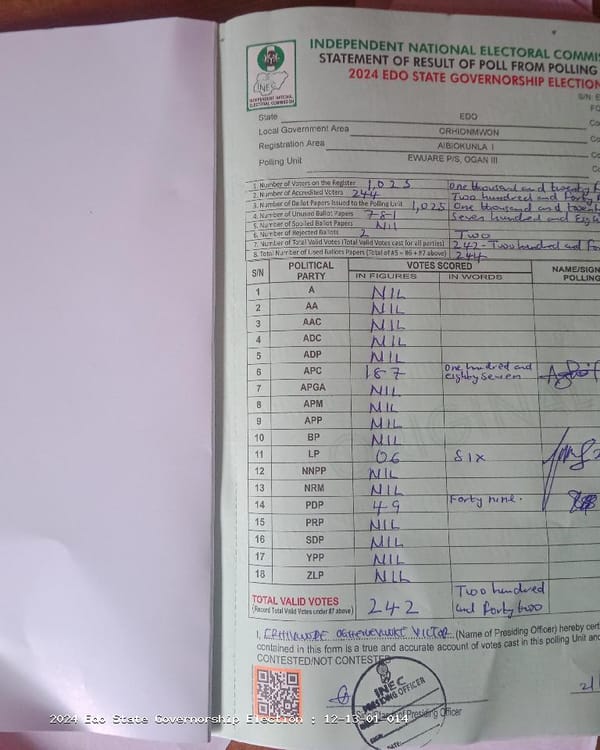 INDEPENDENT NATIONAL ELECTORAL COMMIS
STATEMENT OF RESULT OF POLL FROM POLLING
2024 EDO STATE GOVERNORSHIP ELECTION
INEC
INDEPENDENT NATIONAL ELECTORAL COMMISSION
S/N: E
State EDO
Local Government Area ORHIONMWON
Registration Area AIBIOKUNLA I
Polling Unit EWUARE P/S, OGAN III
1. Number of Voters on the Register 1,025 One thousand and twenty
2. Number of Accredited Voters 244 Two hundred and Forty
3. Number of Ballot Papers Issued to the Polling Unit 1,025 One thousand and
4. Number of Unused Ballot Papers 781 Seven hundred and
5. Number of Spoiled Ballot Papers NIL
6. Number of Rejected Ballots 2 Two
7. Number of Total Valid Votes (Total Valid Votes cast for all parties) 242 - Two hundred and
8. Total Number of Used Ballots Papers (Total of #5 + #6 + #7 above) 244
S/N POLITICAL PARTY VOTES SCORED NAME/SIGN
IN FIGURES IN WORDS POLLING
1 A NIL
2 AA NIL
3 AAC NIL
4 ADC NIL
5 ADP NIL
6 APC 187 One hundred and eighty seven
7 APGA NIL
8 APM NIL
9 APP NIL
10 BP NIL
11 LP 06 SIX
12 NNPP NIL
13 NRM NIL
14 PDP 49 Forty nine.
15 PRP NIL
16 SDP NIL
17 YPP NIL
18 ZLP NIL
TOTAL VALID VOTES 242 Two hundred and forty two
(Record Total Valid Votes under #7 above)
I, VICTOR (Name of Presiding Officer) hereby cert
contained in this form is a true and accurate account of votes cast in this polling Unit and
CONTESTED/NOT CONTESTED
INEC
PRESIDING OFFICER
of Presiding Officer
DATE
2024 Edo State Governorship Election : 12-13-01-014